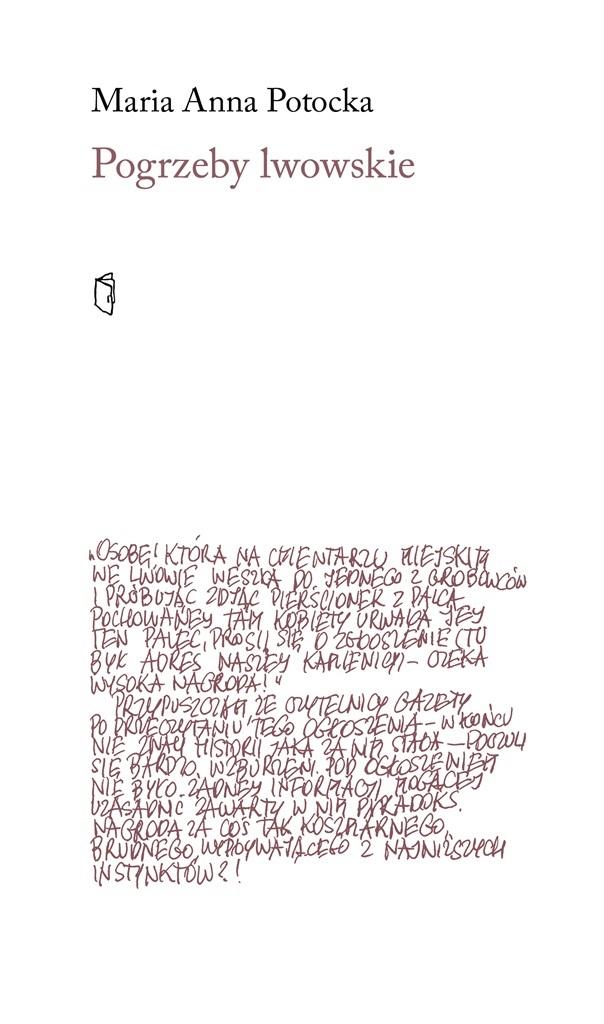 Maria Anna Potocka
Pogrzeby lwowskie
„OSOBĘ, KTÓRA NA CMENTARZU MIEJSKIM
WE LWOWIE WESZŁA DO JEDNEGO Z GROBOWCÓW
I PRÓBUJĄC ZDJĄĆ PIERŚCIONEK Z PALCA
POCHOWANEY TAM KOBIETY URWAŁA JEY
TEN PALEC, PROSI SIĘ O ZGŁOSZENIE (TU
BYŁ ADRES NASZEY KAMIENICY) – CZEKA
WYSOKA NAGRODA!"
PRZYPUSZCZAM ŻE CZYTELNICY GAZETY
PO PRZECZYTANIU TEGO OGŁOSZENIA – W KOŃCU
NIE ZNALI HISTORII JAKA ZA NIM STAŁA – POCZULI
SIĘ BARDZO WZBURZENI. POD OGŁOSZENIEM
NIE BYŁO ŻADNEY INFORMACJI MOGĄCEJ
UZASADNIĆ ZAWARTY W NIM PARADOKS.
NAGRODA ZA COŚ TAK KOSZMARNEGO,
BRUDNEGO, WYPŁYWAJĄCEGO Z NAJNIŻSZYCH
INSTYNKTÓW?!